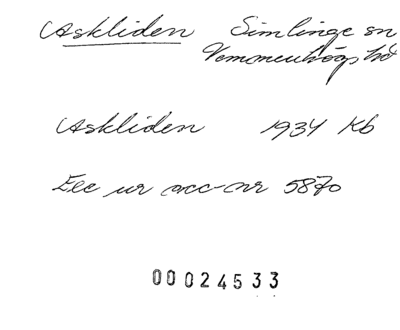 Askliden Simlinge sn
Vemmenhögs hd
Askliden 1934 Kb
Exc ur acc-nr 5870
00024533